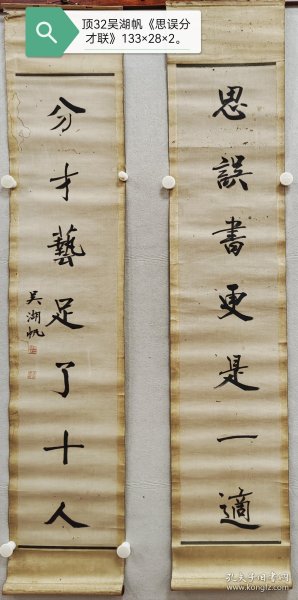 顶32吴湖帆《思误分
才联》133×28×2。
思誤書更是一適
分才藝足了十人
吴湖帆
孔夫子旧书网
www.kongfz.com